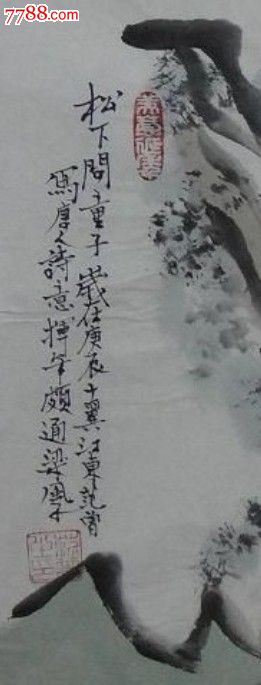 7788.com
松下問童子歲在庚辰十翼江東范曾
寫唐人詩意揮頗通梁風子